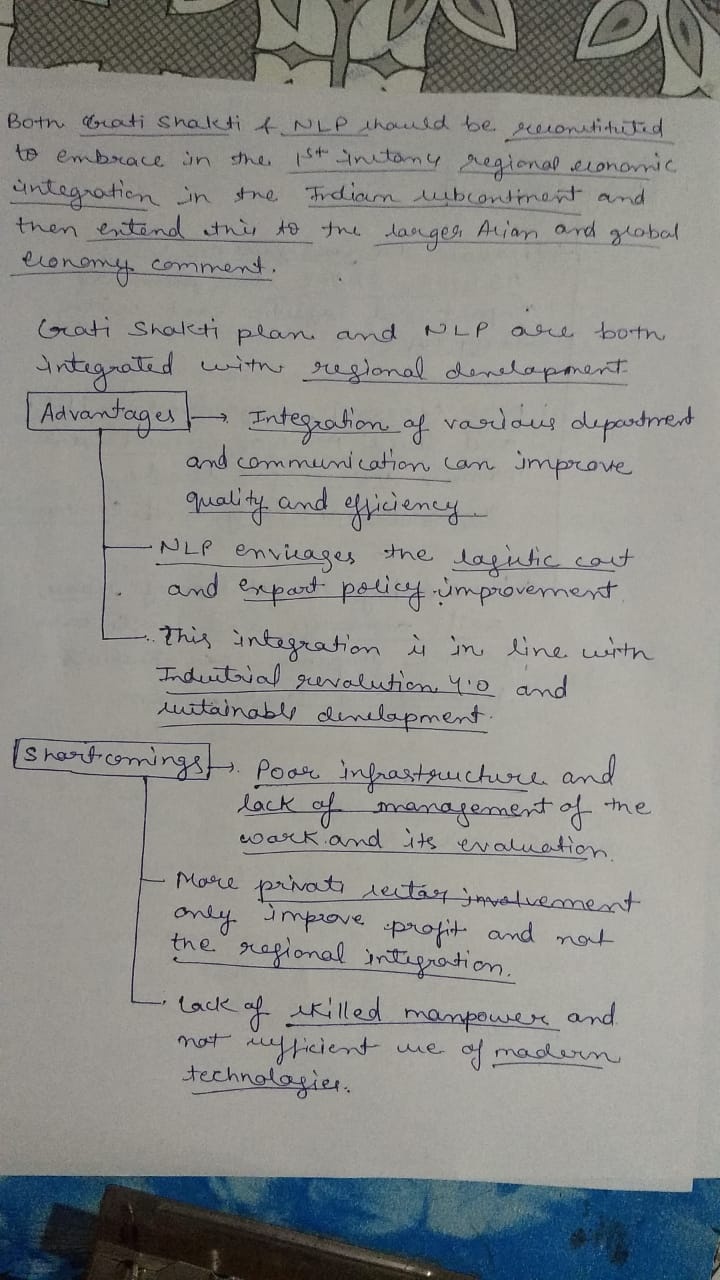 Both Gati Shakti & NLP should be reconstituted
to embrace in the 1st instany regional economic
integration in the Indian subcontinent and
then extend this to the larger Asian and global
economy comment.
Gati Shakti plan and NLP are both
integrated with regional development.
Advantages → Integration of various department
and communication can improve
quality and efficiency.
NLP envisages the logistic cost
and export policy improvement.
This integration is in line with
Industrial revolution 4.0 and
sustainable development.
Shortcomings → Poor infrastructure and
lack of management of the
work and its evaluation.
More private sector involvement
only improve profit and not
the regional integration.
Lack of skilled manpower and
not sufficient use of modern
technologies.